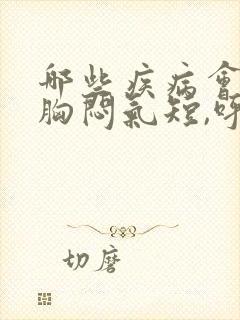 那些疾病會
胸悶氣短,呼
切磨